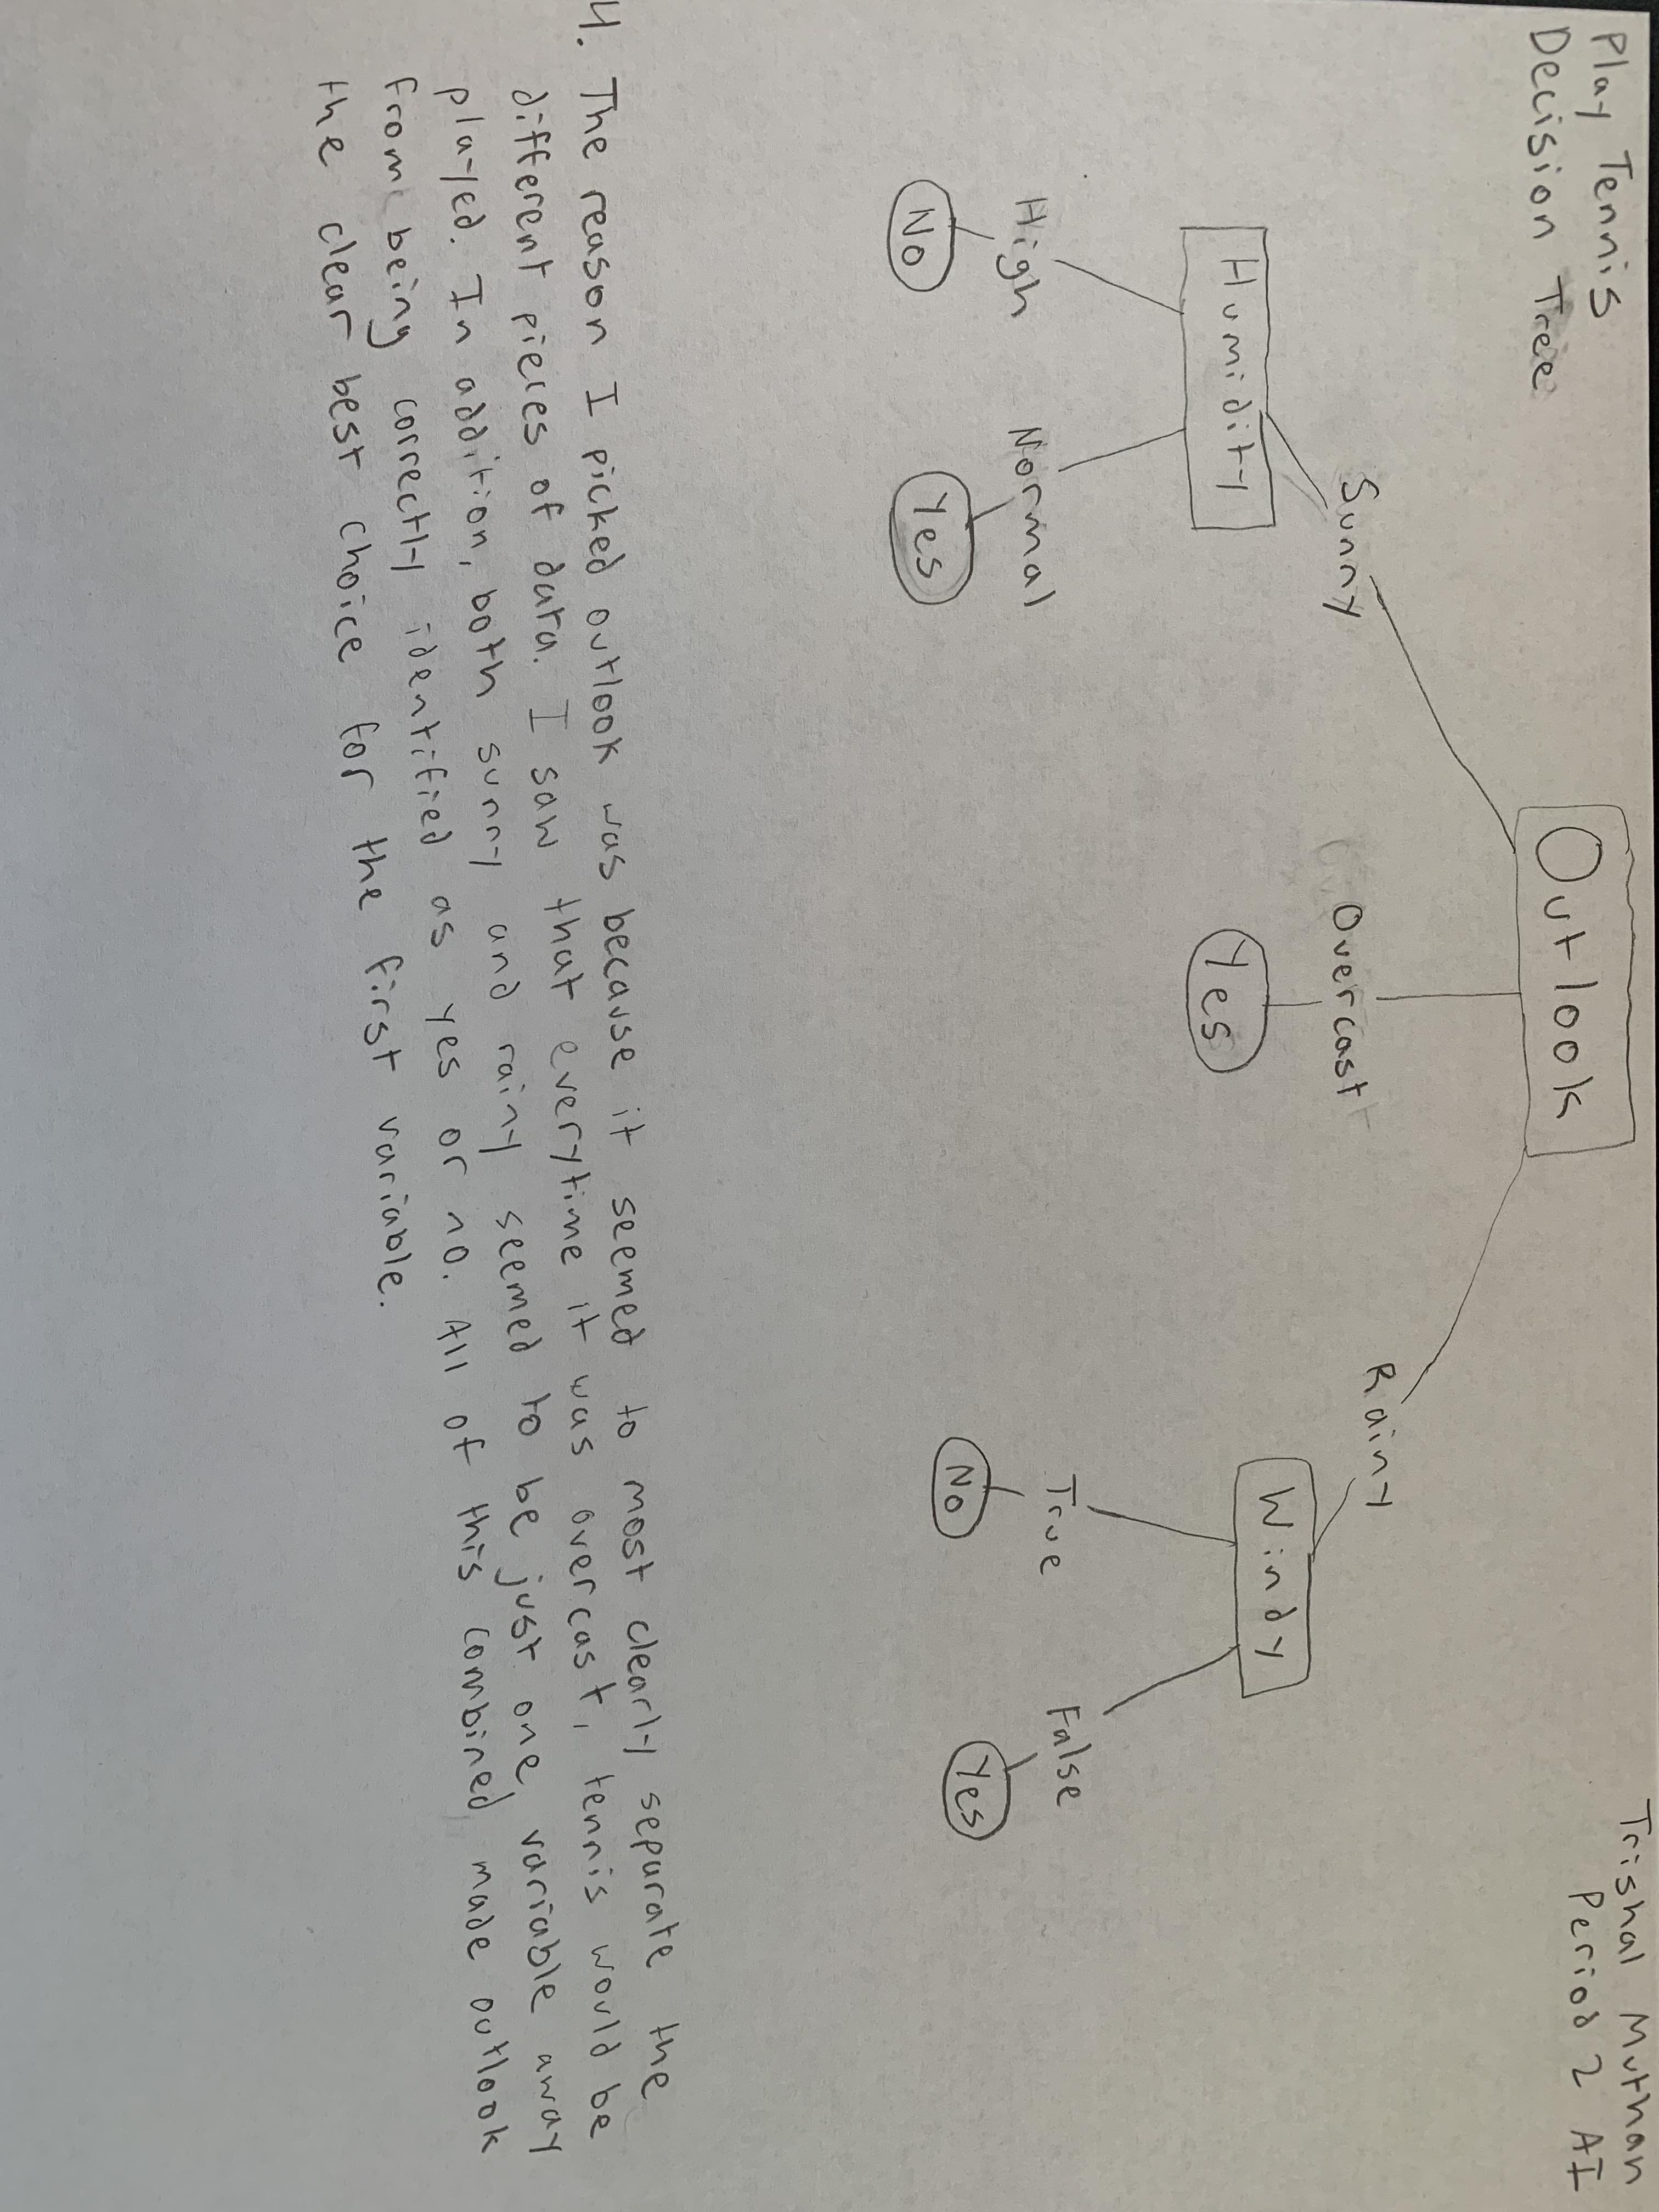 Play Tennis
Decision Tree
Trishal Muthan
Period 2 AI
Outlook
Sunny
Overcast
Rainy
Humidity
Yes
Windy
High
Normal
True
False
No
Yes
No
Yes
4. The reason I picked outlook was because it seemed to most clearly separate the
different pieces of data. I saw that everytime it was overcast, tennis would be
played. In addition, both sunny and rainy seemed to be just one variable away
from being correctly identified as yes or no. All of this combined made outlook
the clear best choice for the first variable.